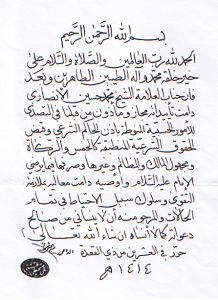 بسم الله الرحمن الرحيم
الحمد لله رب العالمين والصلاة والسلام على
خير خلقه محمد وآله الطيبين الطاهرين وبعد
فان جناب العلامة الشيخ محمد حسين الانصاري
دامت تأييداته مجاز ومأذون من قبلنا في التصدي
للأمور الحسبية المنوطة باذن الحاكم الشرعي وقبض
الحقوق الشرعية المنطبقة كالخمس والزكوات
ومجهول المالك والمظالم وغيرها وصرفها فيما يرضي
الامام عليه السلام وأوصيه دامت معاليه بملازمة
التقوى وسلوك سبيل الاحتياط في تمام
الحالات والمرجو منه أن لا ينساني من صالح
دعواته كما لا أنساه ان شاء الله تعالى
حرر في العشرين من ذي القعدة
١٤١٤ هـ